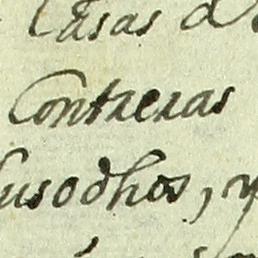 Casas d
Contreras
susodhos, y